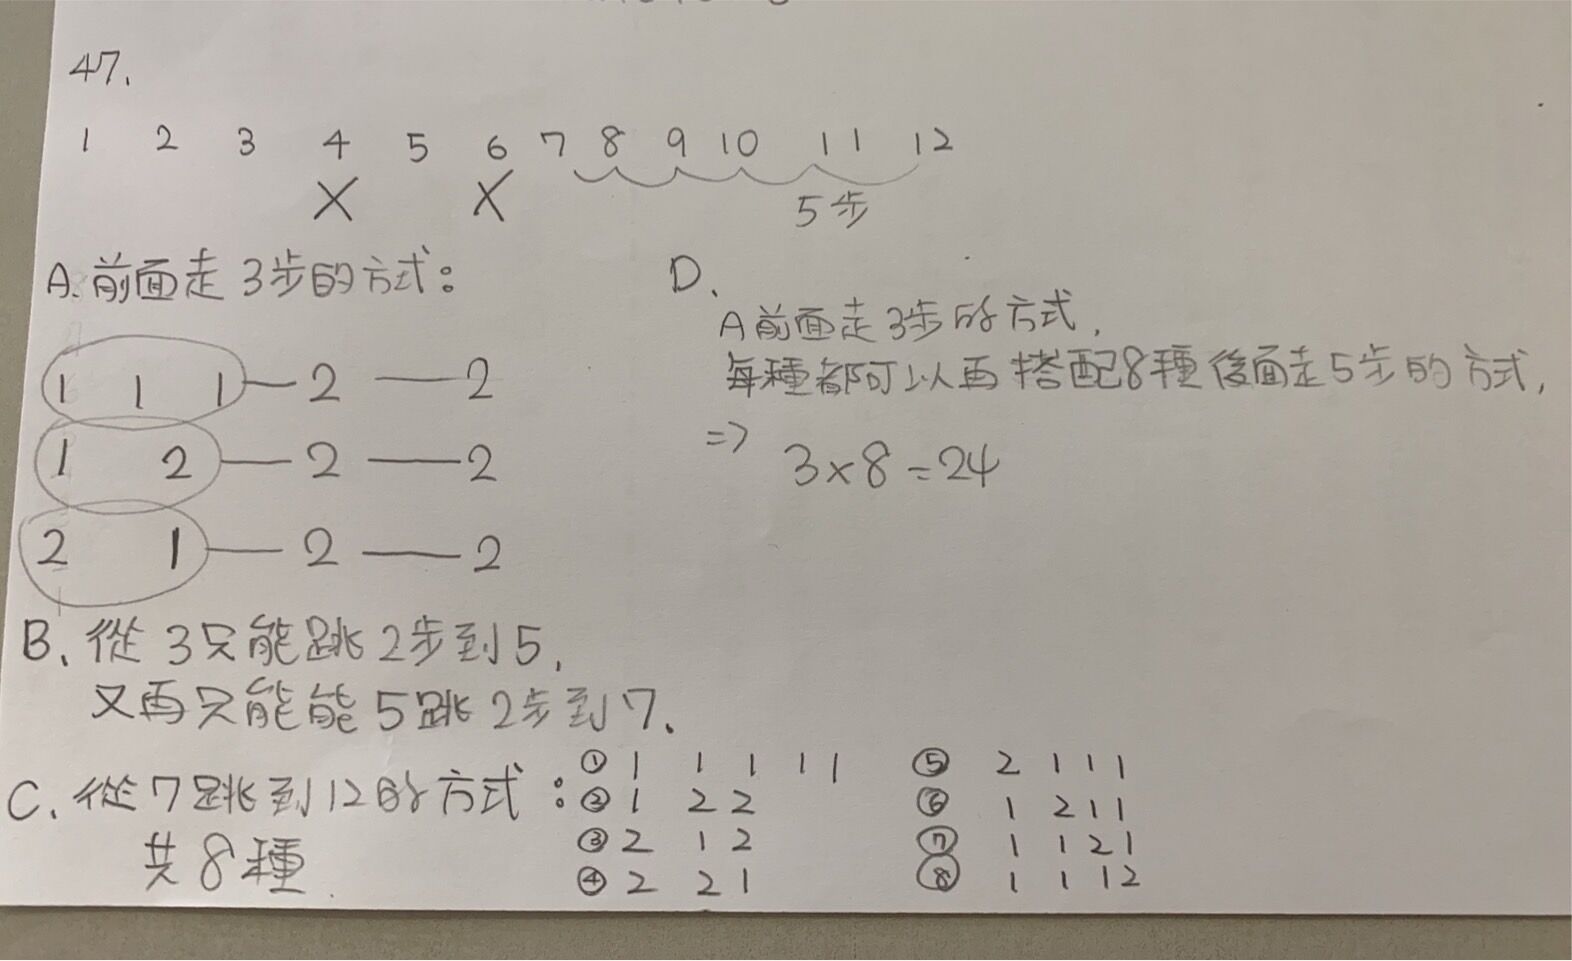 47.
1 2 3 4 5 6 7 8 9 10 11 12
X X
5步
A.前面走3步的方式:
1 1 1—2—2
1 2—2—2
2 1—2—2
B、從3只能跳2步到5,
又再只能能5跳2步到7、
C、從7跳到12的方式:
共8種
① 1 1 1 1 1
② 1 2 2
③ 2 1 2
④ 2 2 1
⑤ 2 1 1 1
⑥ 1 2 1 1
⑦ 1 1 2 1
⑧ 1 1 1 2
D、
A前面走3步的方式,
每種都可以再搭配8種後面走5步的方式,
=> 3×8=24